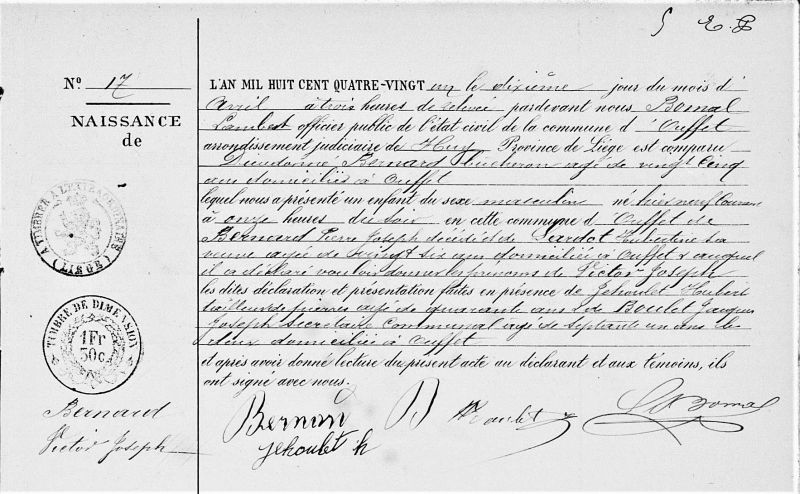 5 E.P
N° 17
NAISSANCE
de
A TIMBRER A L'EXTRAORDINAIRE
(LIÉGE)
TIMBRE DE DIMENSION
1 Fr
30c
Bernard
Victor Joseph
L'AN MIL HUIT CENT QUATRE-VINGT un le dixième jour du mois d'
Avril à trois heures de relevée pardevant nous Bomal
Lambert officier public de l'état civil de la commune d'Ouffet
arrondissement judiciaire de Huy Province de Liége est comparu
Dieudonné Bernard bûcheron agé de vingt cinq
ans domicilié à Ouffet
lequel nous a présenté un enfant du sexe masculin né hier neuf courant
à onze heures du soir en cette commune d'Ouffet de
Bernard Pierre Joseph décédé et de Lardot Hubertine sa
veuve agée de vingt six ans domiciliée à Ouffet & auquel
il a déclaré vouloir donner les prénoms de Victor Joseph
les dites déclaration et présentation faites en présence de Jehoulet Hubert
tailleur de pierres agé de quarante ans & de Boulet Jacques
Joseph Secrétaire Communal agé de septante un ans les
deux domiciliés à Ouffet
et après avoir donné lecture du présent acte au déclarant et aux témoins, ils
ont signé avec nous.
Bernard D Boulet L Bomal
Jehoulet h